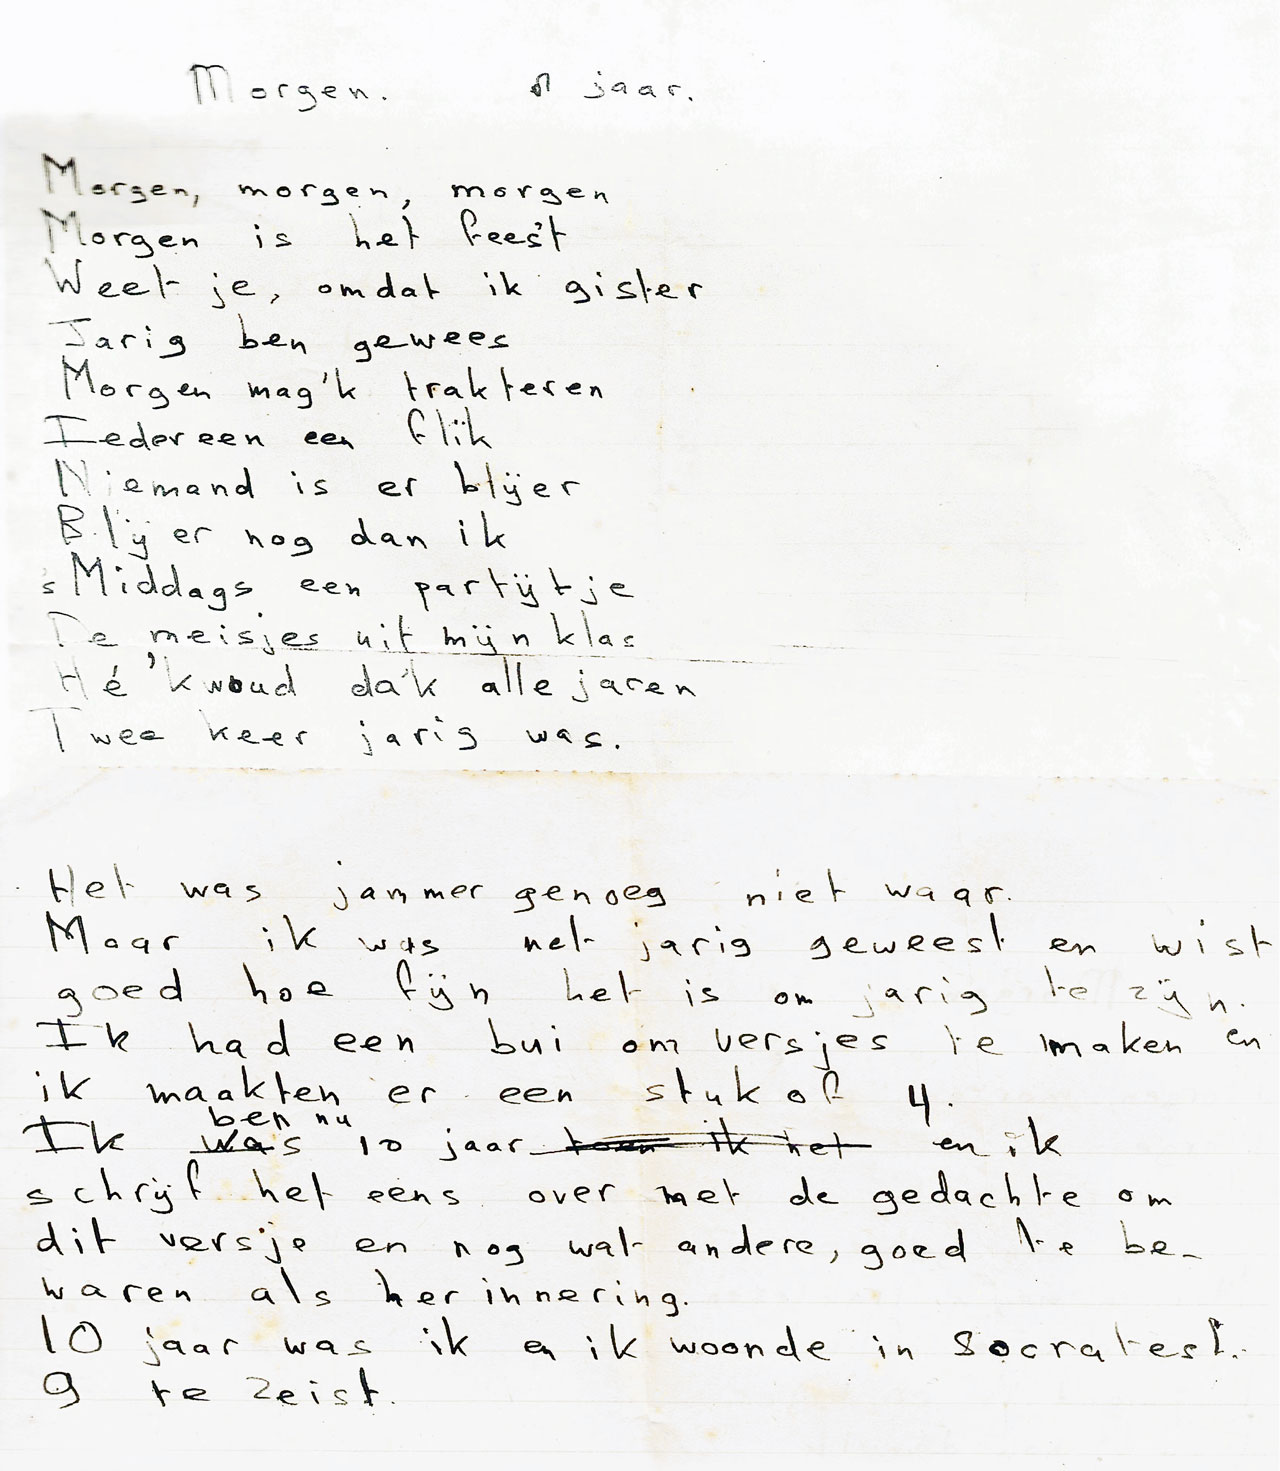 Morgen. jaar.
Morgen, morgen, morgen
Morgen is het feest
Weet je, omdat ik gister
Jarig ben gewees
Morgen mag'k trakteren
Iedereen een flik
Niemand is er blijer
Blijer nog dan ik
's Middags een partijtje
De meisjes uit mijn klas
Hé 'k woud da'k alle jaren
Twee keer jarig was.
Het was jammer genoeg niet waar.
Maar ik was net jarig geweest en wist
goed hoe fijn het is om jarig te zijn.
Ik had een bui om versjes te maken en
ik maakten er een stuk of 4.
ben nu
Ik was 10 jaar toen ik het en ik
schrijf het eens over met de gedachte om
dit versje en nog wat andere, goed te be-
waren als herinnering.
10 jaar was ik en ik woonde in Socratesl.
9 te Zeist.